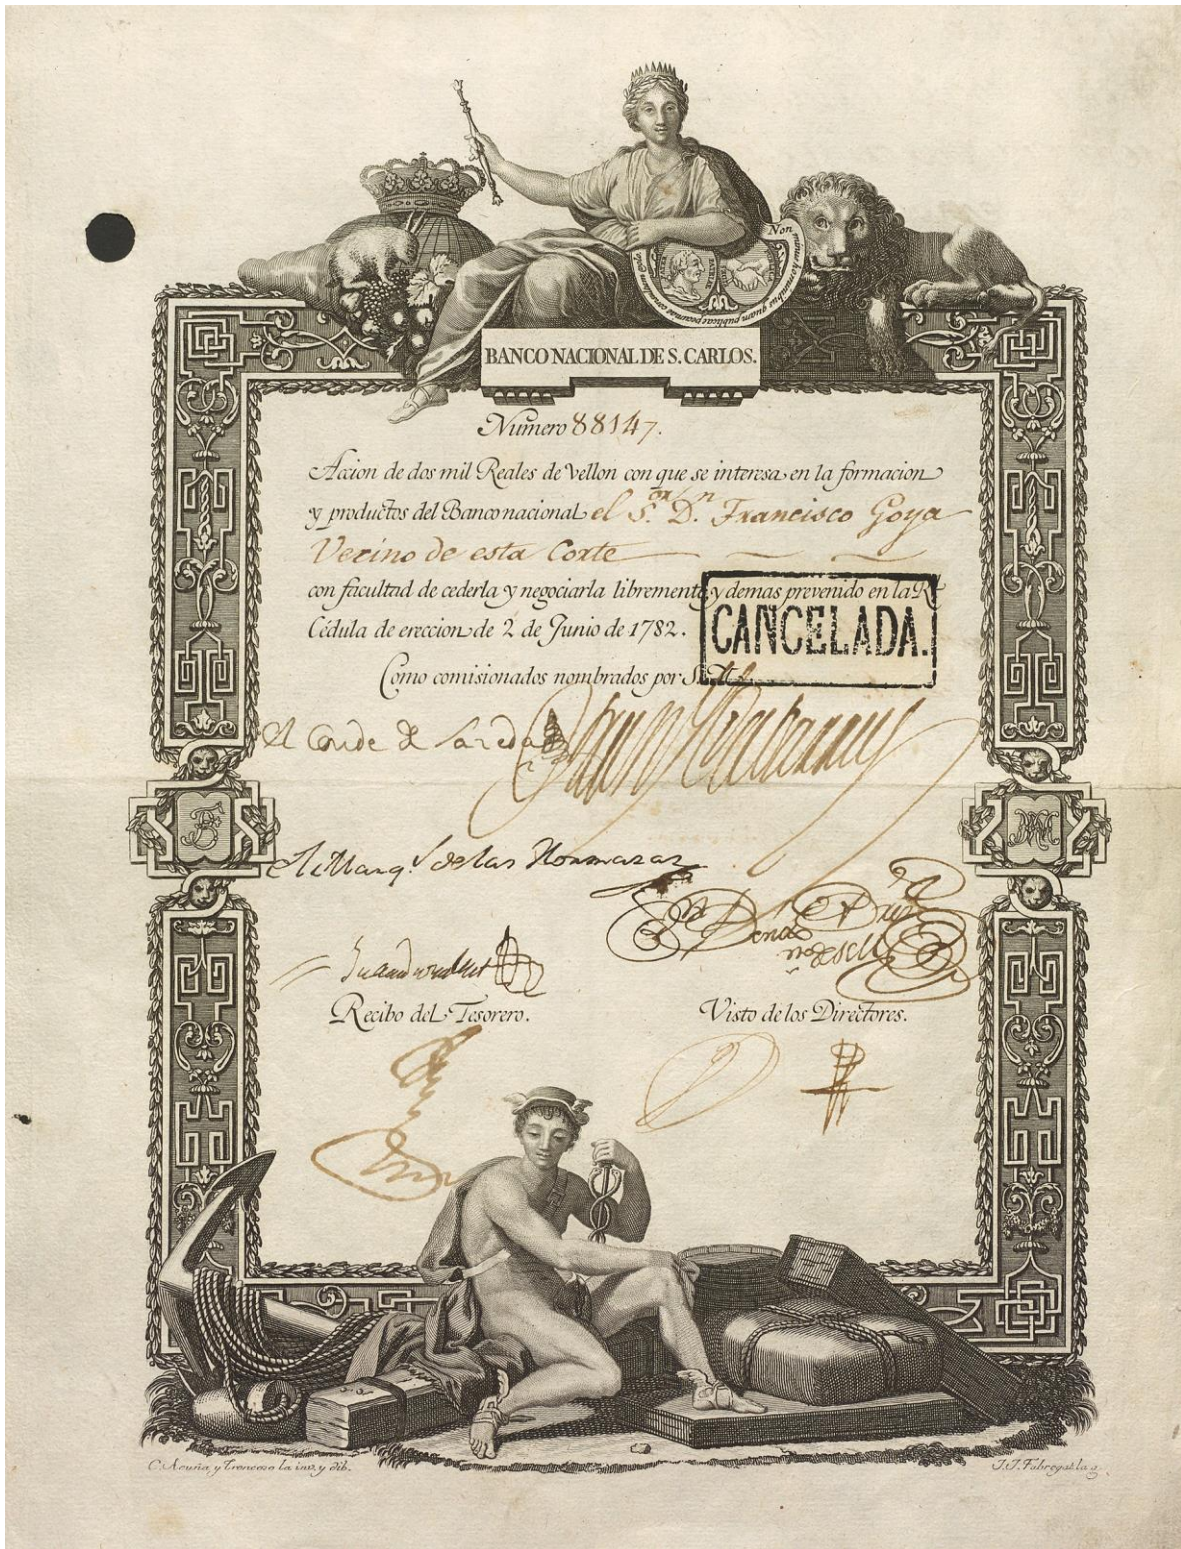 Non minus omnibus quam publicae pecuniae consulendum
BANCO NACIONAL DE S. CARLOS.
Numero 88147.
Accion de dos mil Reales de Vellon con que se interesa en la formacion
y productos del Banco nacional el S.or D.n Francisco Goya
Vecino de esta Corte
con facultad de cederla y negociarla libremente, y demas prevenido en la R.l
Cédula de ereccion de 2 de Junio de 1782.
CANCELADA.
Como comisionados nombrados por S. M.
El Conde de
El Marq.s de las Hormazas
Recibo del Tesorero.
Visto de los Directores.
C. Acuña y Troncoso la inv. y dib.
J. J. Fabregat la g.